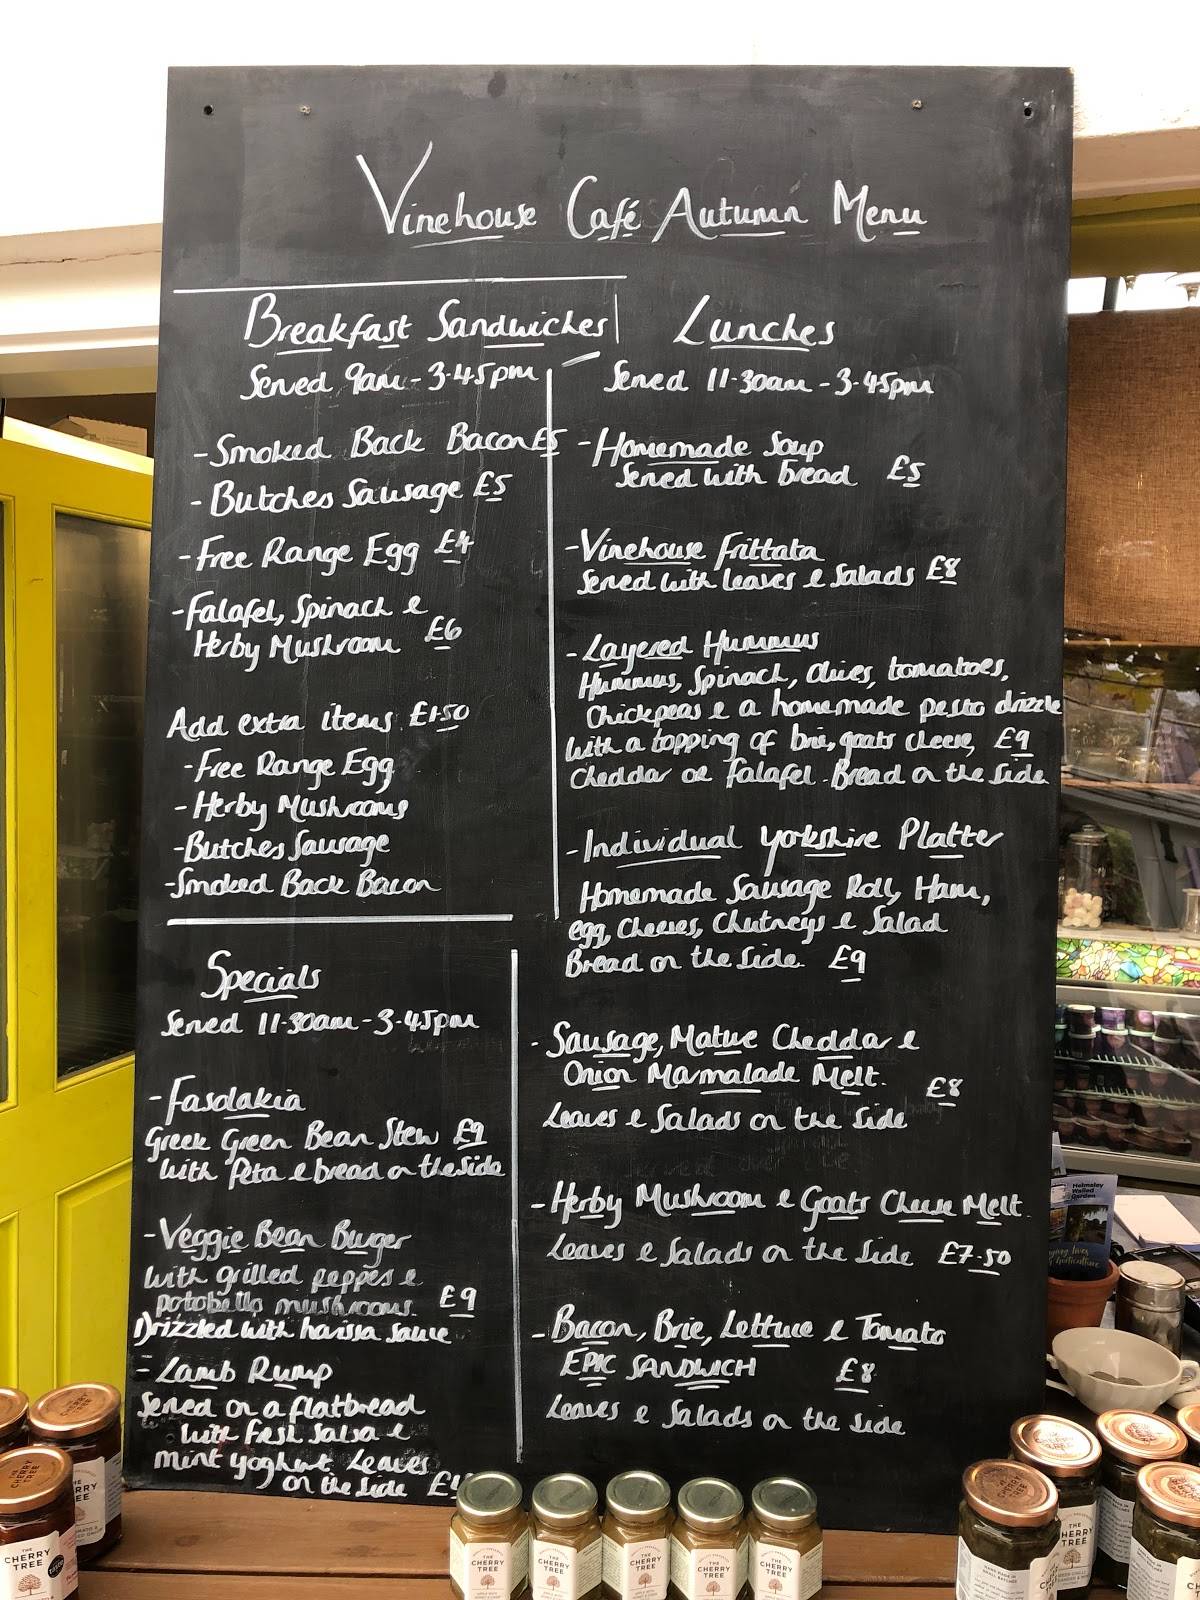 Vinehouse Café Autumn Menu
Breakfast Sandwiches
Served 9am - 3.45pm
- Smoked Back Bacon £5
- Butchers Sausage £5
- Free Range Egg £4
- Falafel, Spinach &
Herby Mushroom £6
Add extra items £1.50
- Free Range Egg
- Herby Mushrooms
- Butchers Sausage
- Smoked Back Bacon
Specials
Served 11.30am - 3.45pm
- Fasolakia
Greek Green Bean Stew £9
with Feta & bread on the side
- Veggie Bean Burger
with grilled peppers &
potobello mushrooms £9
Drizzled with harissa sauce
- Lamb Rump
Served on a flatbread
with fresh salsa &
mint yoghurt Leaves
on the side
Lunches
Served 11.30am - 3.45pm
- Homemade Soup
Served with bread £5
- Vinehouse Frittata
Served with leaves & Salads £8
- Layered Hummus
Hummus, Spinach, Olives, tomatoes,
Chickpeas & a homemade pesto drizzle
with a topping of brie, goats cheese, £9
Cheddar or falafel. Bread on the side
- Individual Yorkshire Platter
Homemade Sausage Roll, Ham,
egg, Cheeses, Chutneys & Salad
Bread on the side £9
- Sausage, Mature Cheddar &
Onion Marmalade Melt.
£8
Leaves & Salads on the side
- Herby Mushroom & Goats Cheese Melt.
Leaves & Salads on the side £7.50
- Bacon, Brie, Lettuce & Tomato
EPIC SANDWICH £8
Leaves & Salads on the side
Helmsley
Walled
Garden
THE
CHERRY
TREE
THE
CHERRY
TREE
THE
CHERRY
TREE
THE
CHERRY
TREE
THE
CHERRY
TREE
THE
CHERRY
TREE
THE
CHERRY
TREE